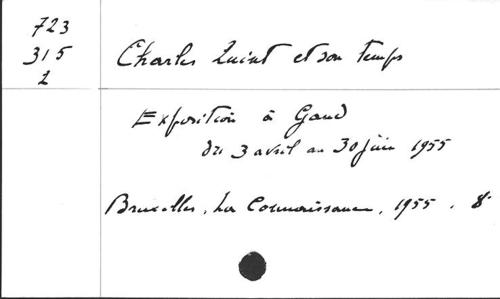 723
315
2
Charles Quint et son temps
Exposition à Gand
du 3 avril au 30 juin 1955
Bruxelles, La Connaissance, 1955. 8°